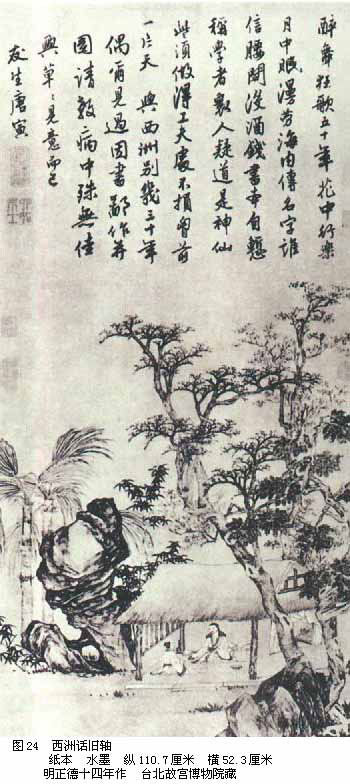 醉舞狂歌五十年花中行樂
月中眠漫勞海內傳名字誰
信腰間沒酒錢書本自慙
稱學者眾人疑道是神仙
些須做得工夫處不損胸前
一片天 與西洲別幾三十年
偶爾見過因書鄙作并
圖請教病中殊無佳
興草々見意而已
友生唐寅
图24 西洲话旧轴
纸本 水墨 纵110.7厘米 横52.3厘米
明正德十四年作 台北故宫博物院藏